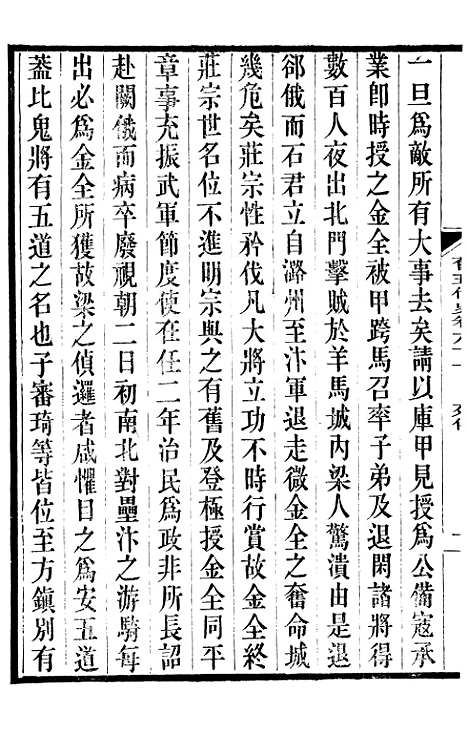 一旦爲敵所有大事去矣請以庫甲見授爲公備寇承
業卽時授之金全被甲跨馬召率子弟及退閑諸將得
數百人夜出北門擊賊於羊馬城內梁人驚潰由是退
郤俄而石君立自潞州至汴軍退走微金全之奮命城
幾危矣莊宗性矜伐凡大將立功不時行賞故金全終
莊宗世名位不進明宗與之有舊及登極授金全同平
章事充振武軍節度使在任二年治民爲政非所長詔
赴闕俄而病卒廢視朝二日初南北對壘汴之游騎每
出必爲金全所獲故梁之偵邏者咸懼目之爲安五道
蓋比鬼將有五道之名也子審琦等皆位至方鎮別有